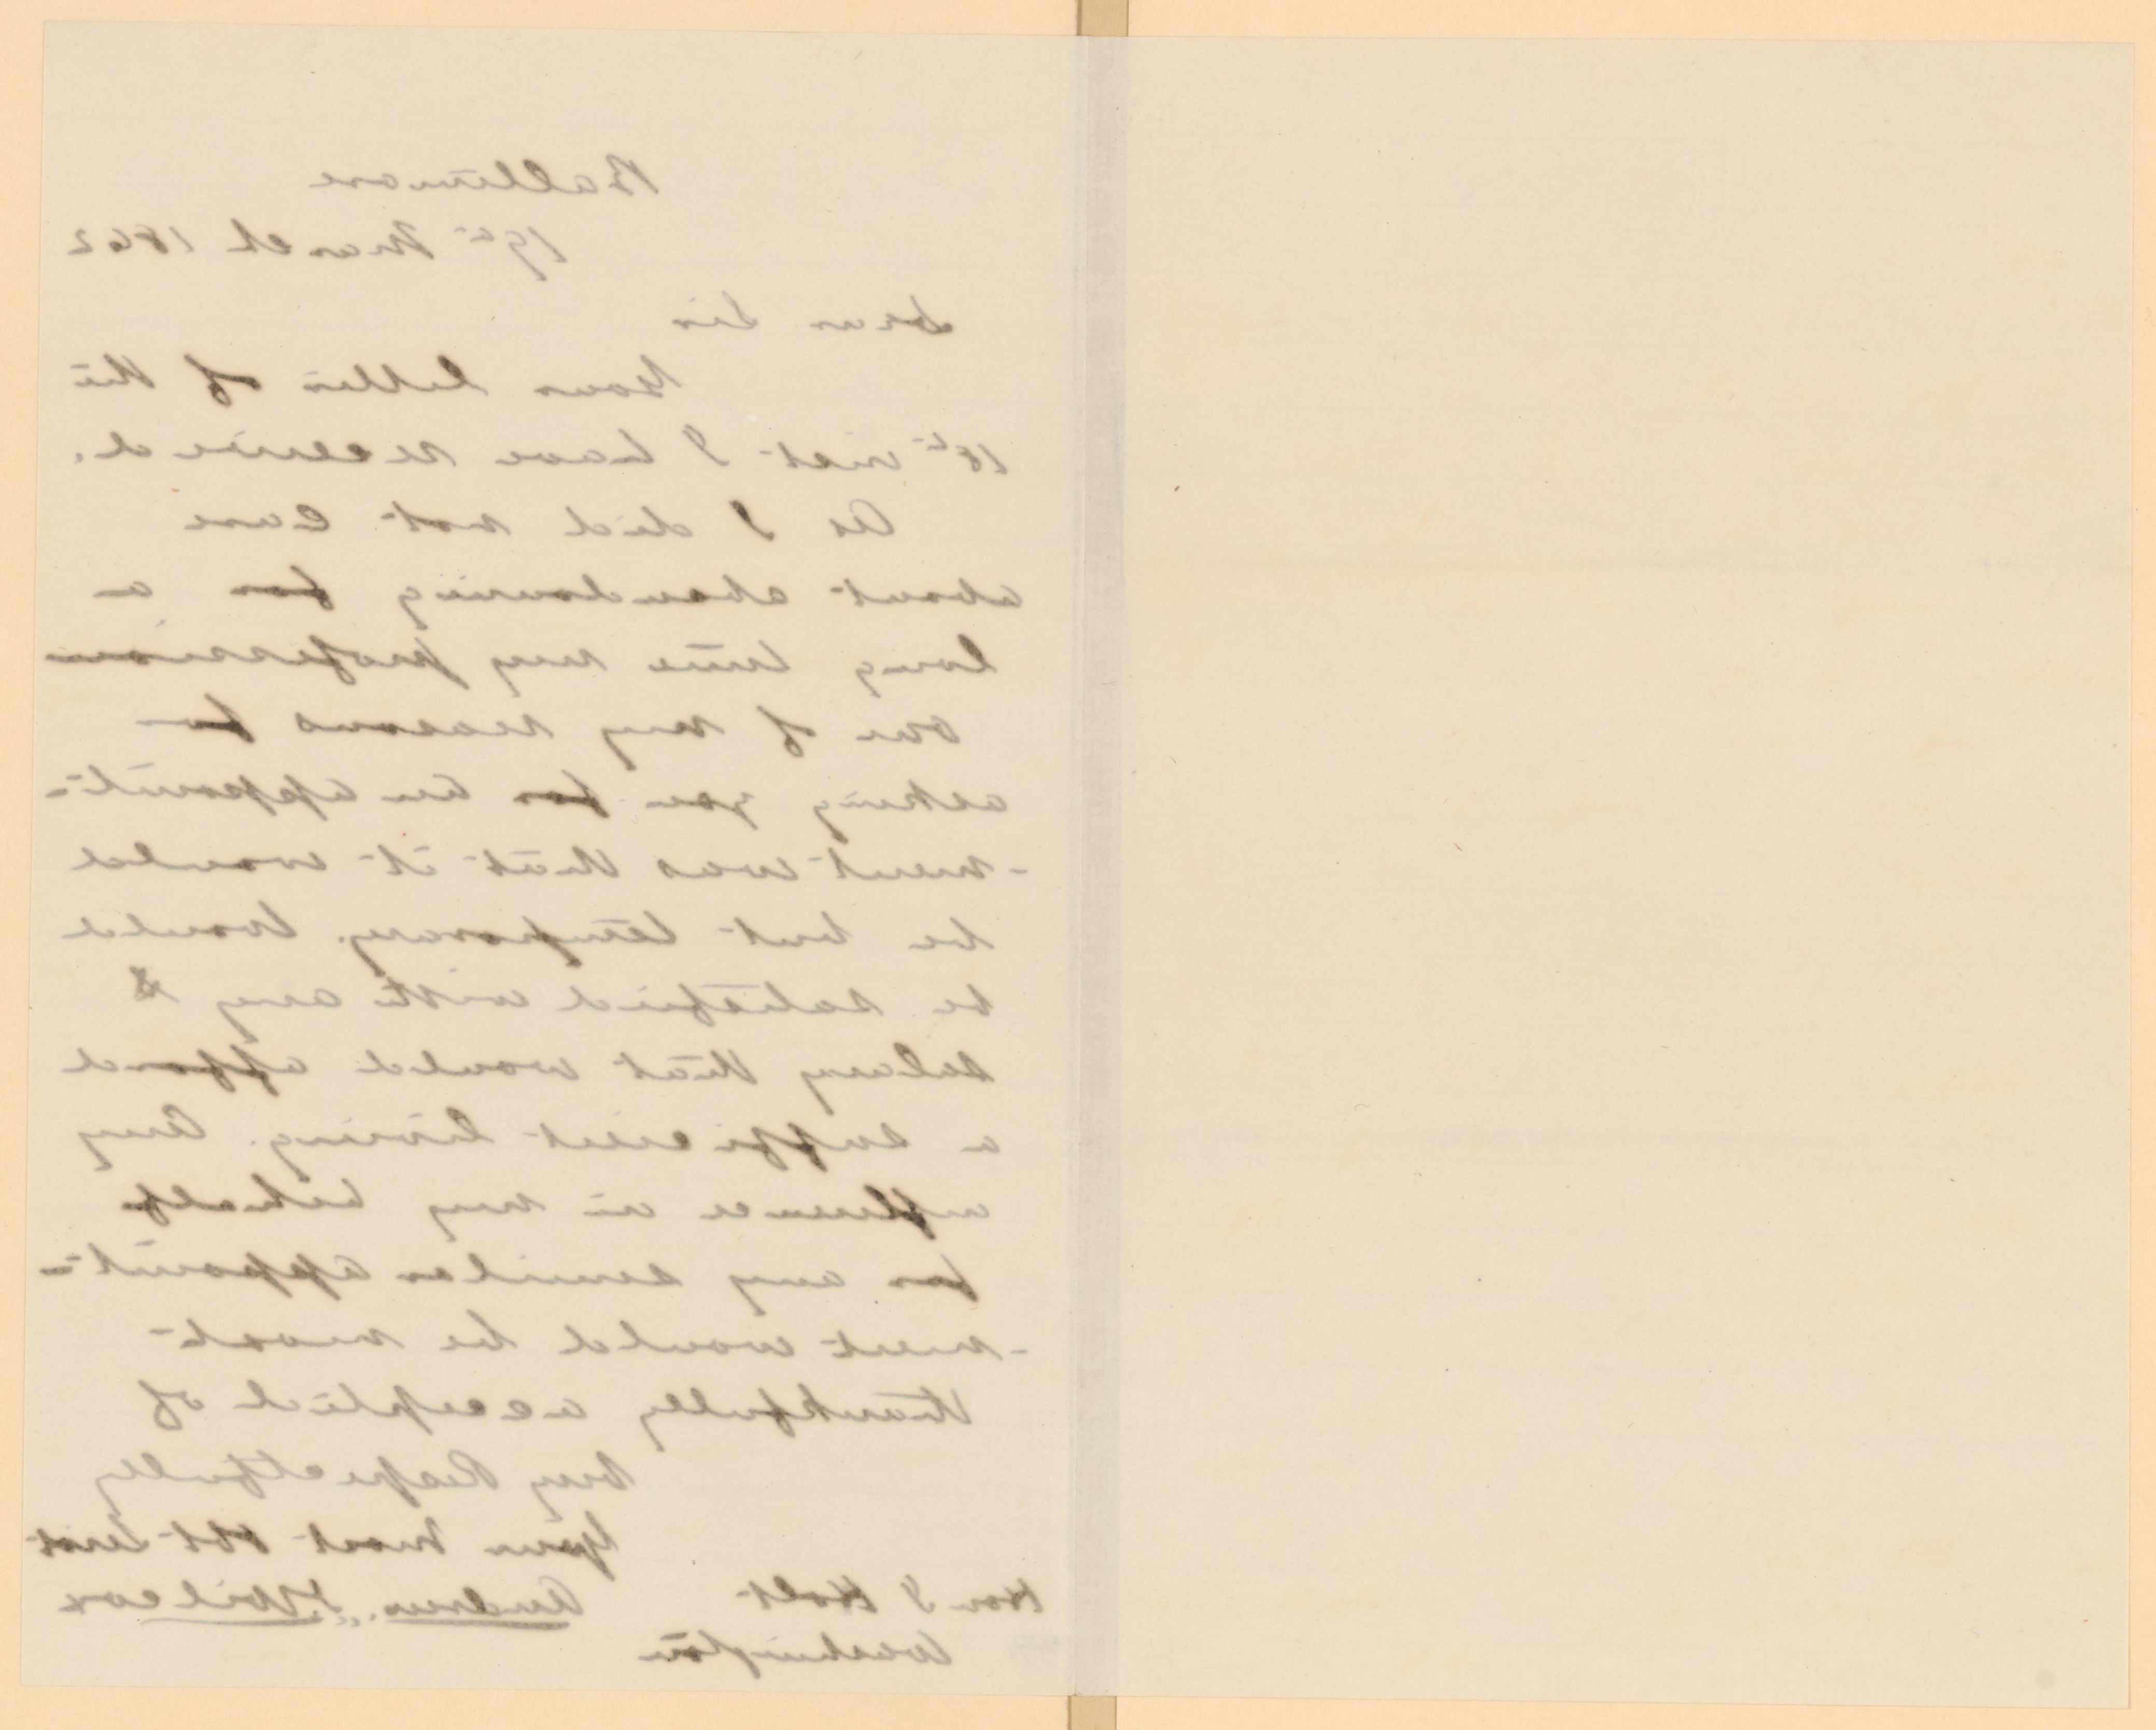 Baltimore
19th March 1862
Dear Sir
Your letter of the
18th inst I have received.
As I did not care
about abandoning for a
long time my profession
one of my reasons for
asking you for an appoint-
-ment was that it would
be but temporary. Would
be satisfied with any
salary that would afford
a sufficient living. Any
influence in my behalf
for any similar appoint-
-ment would be most
thankfully accepted of
Very Respectfully
Your most obt Servt
Andrew Wilcox
Hon J Holt
Washington